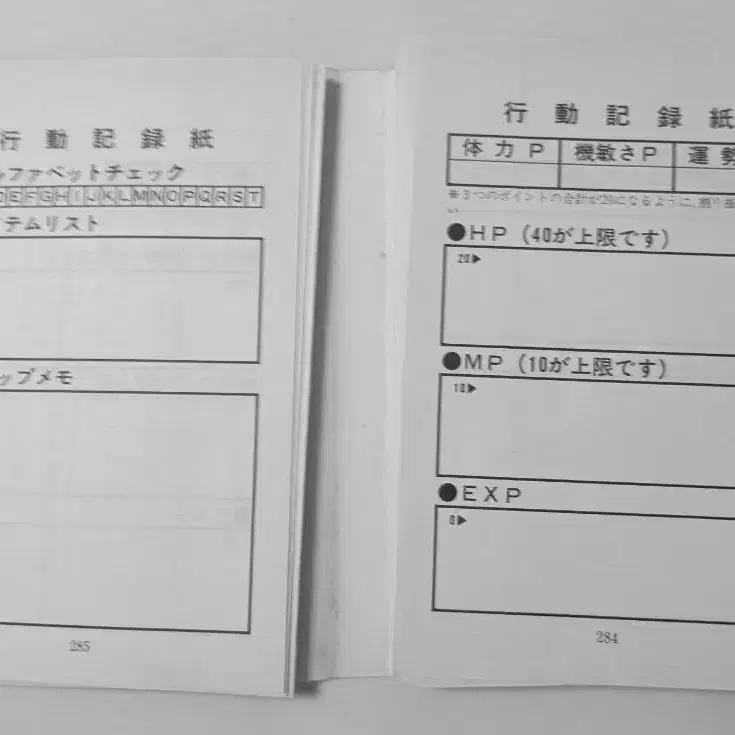 行動記録紙
ファベットチェック
EFGHIJKLMNOPQRST
テムリスト
ップメモ
285
行動記録紙
体力P 機敏さP 運勢
※3つのポイントの合計が20になるように、割り
い
●HP（40が上限です）
20▶
●MP（10が上限です）
10▶
●EXP
0▶
284